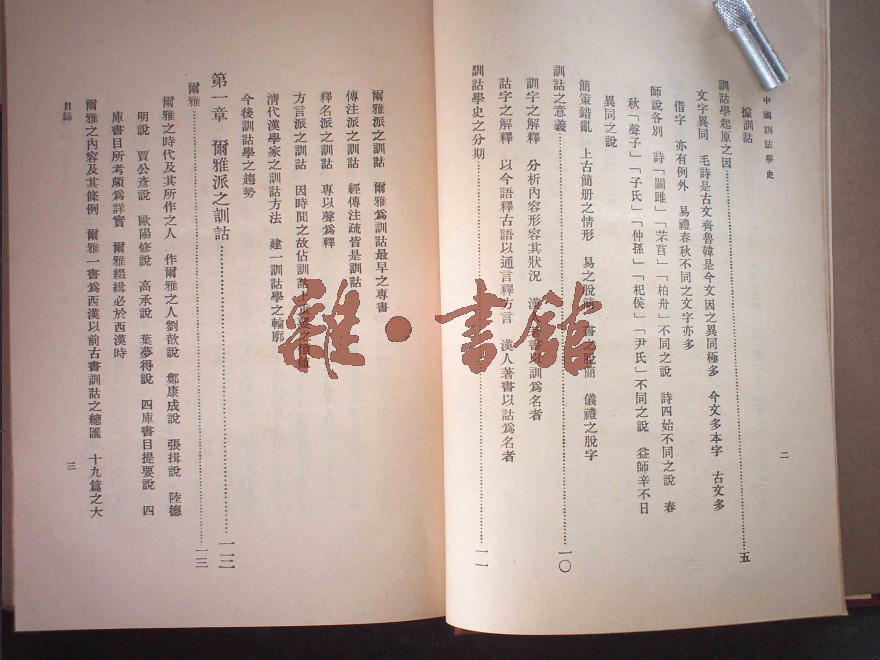 中國訓詁學史
二
據訓詁
訓詁學起原之因……五
文字異同　毛詩是古文齊魯韓是今文因之異同極多　今文多本字　古文多
借字　亦有例外　易禮春秋不同之文字亦多
師說各別　詩「關雎」「芣苢」「柏舟」不同之說　詩四始不同之說　春
秋「聲子」「子氏」「仲孫」「杞侯」「尹氏」不同之說　益師卒不日
異同之說
簡策錯亂　上古簡册之情形　易之脫簡　書之脫簡　儀禮之脫字
訓詁之意義……一〇
訓字之解釋　分析內容形容其狀況　漢人著書以訓爲名者
詁字之解釋　以今語釋古語以通言釋方言　漢人著書以詁爲名者
訓詁學史之分期……一一
爾雅派之訓詁　爾雅爲訓詁最早之專書
傳注派之訓詁　經傳注疏皆是訓詁
釋名派之訓詁　專以聲爲釋
方言派之訓詁　因時間之故佔訓詁上重要之價值
清代漢學家之訓詁方法　建一訓詁學之輪廓
今後訓詁學之趨勢
第一章　爾雅派之訓詁……一二
爾雅……一三
爾雅之時代及其所作之人　作爾雅之人劉歆說　鄭康成說　張揖說　陸德
明說　賈公彥說　歐陽修說　高承說　葉夢得說　四庫書目提要說　四
庫書目所考頗爲詳實　爾雅綴緝必於西漢時
爾雅之內容及其條例　爾雅一書爲西漢以前古書訓詁之總匯　十九篇之大
目錄
三
雜·書館